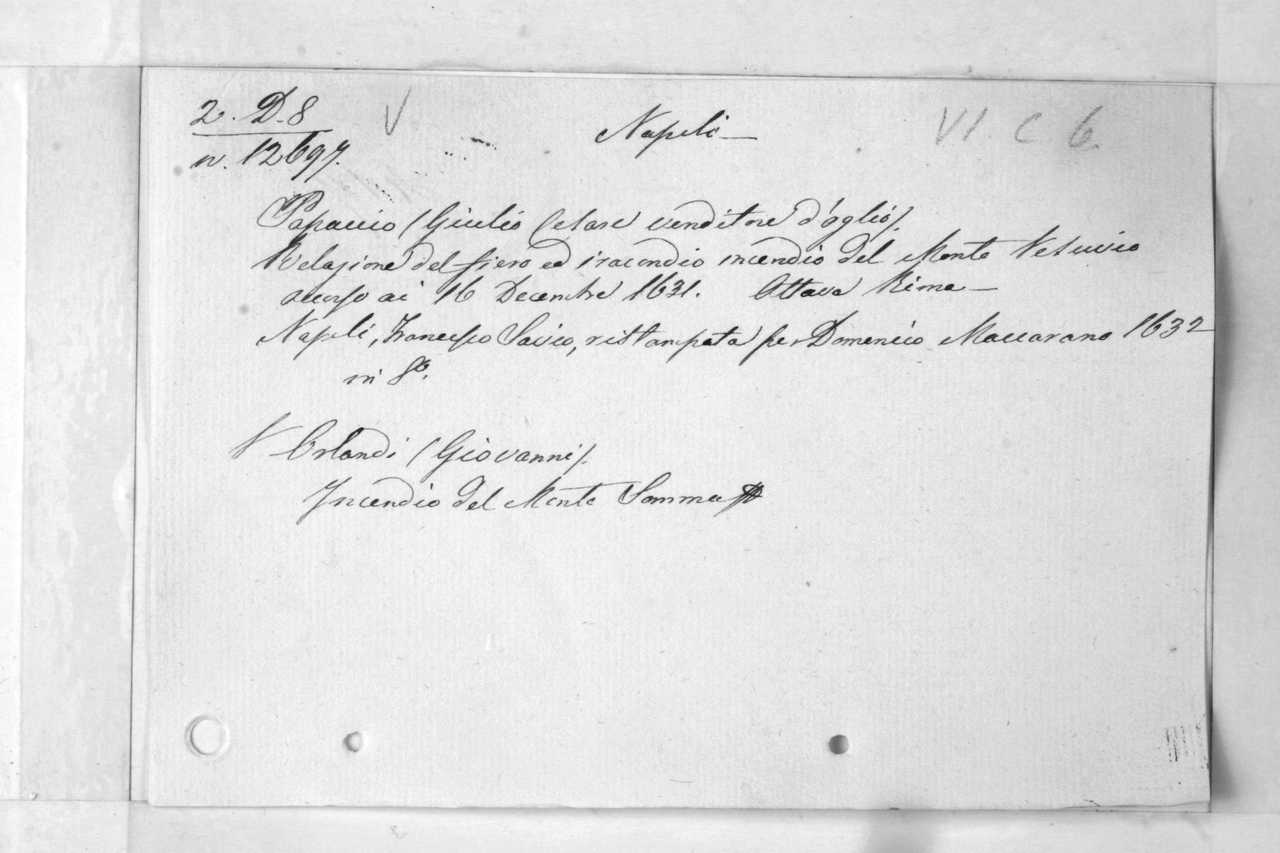 2. D. 8 V Napoli — VI C 6.
n. 12697.
Papaccio (Giulio Cesare venditore d'oglio).
Relazione del fiero ed iracondio incendio del Monte Vesuvio
occorso ai 16 Decembre 1631. Ottava Rima —
Napoli, Francesco Savio, ristampata per Domenico Maccarano 1632
in 8º.
V Orlandi (Giovanni).
Incendio del Monte Somma